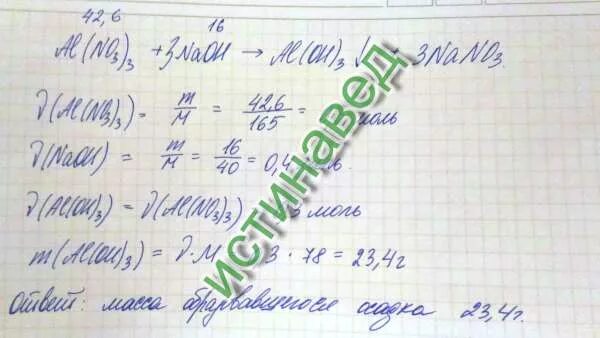 42,6 16
Al(NO₃)₃ + 3NaOH → Al(OH)₃↓ 3NaNO₃
ν(Al(NO₃)₃) = m/M = 42,6/165 = моль
ν(NaOH) = m/M = 16/40 = 0,4
ν(Al(OH)₃) = ν(Al(NO₃)₃) 3 моль
m(Al(OH)₃) = ν·M 3 · 78 = 23,4г
Ответ: масса образовавшегося осадка 23,4г.
истинавед